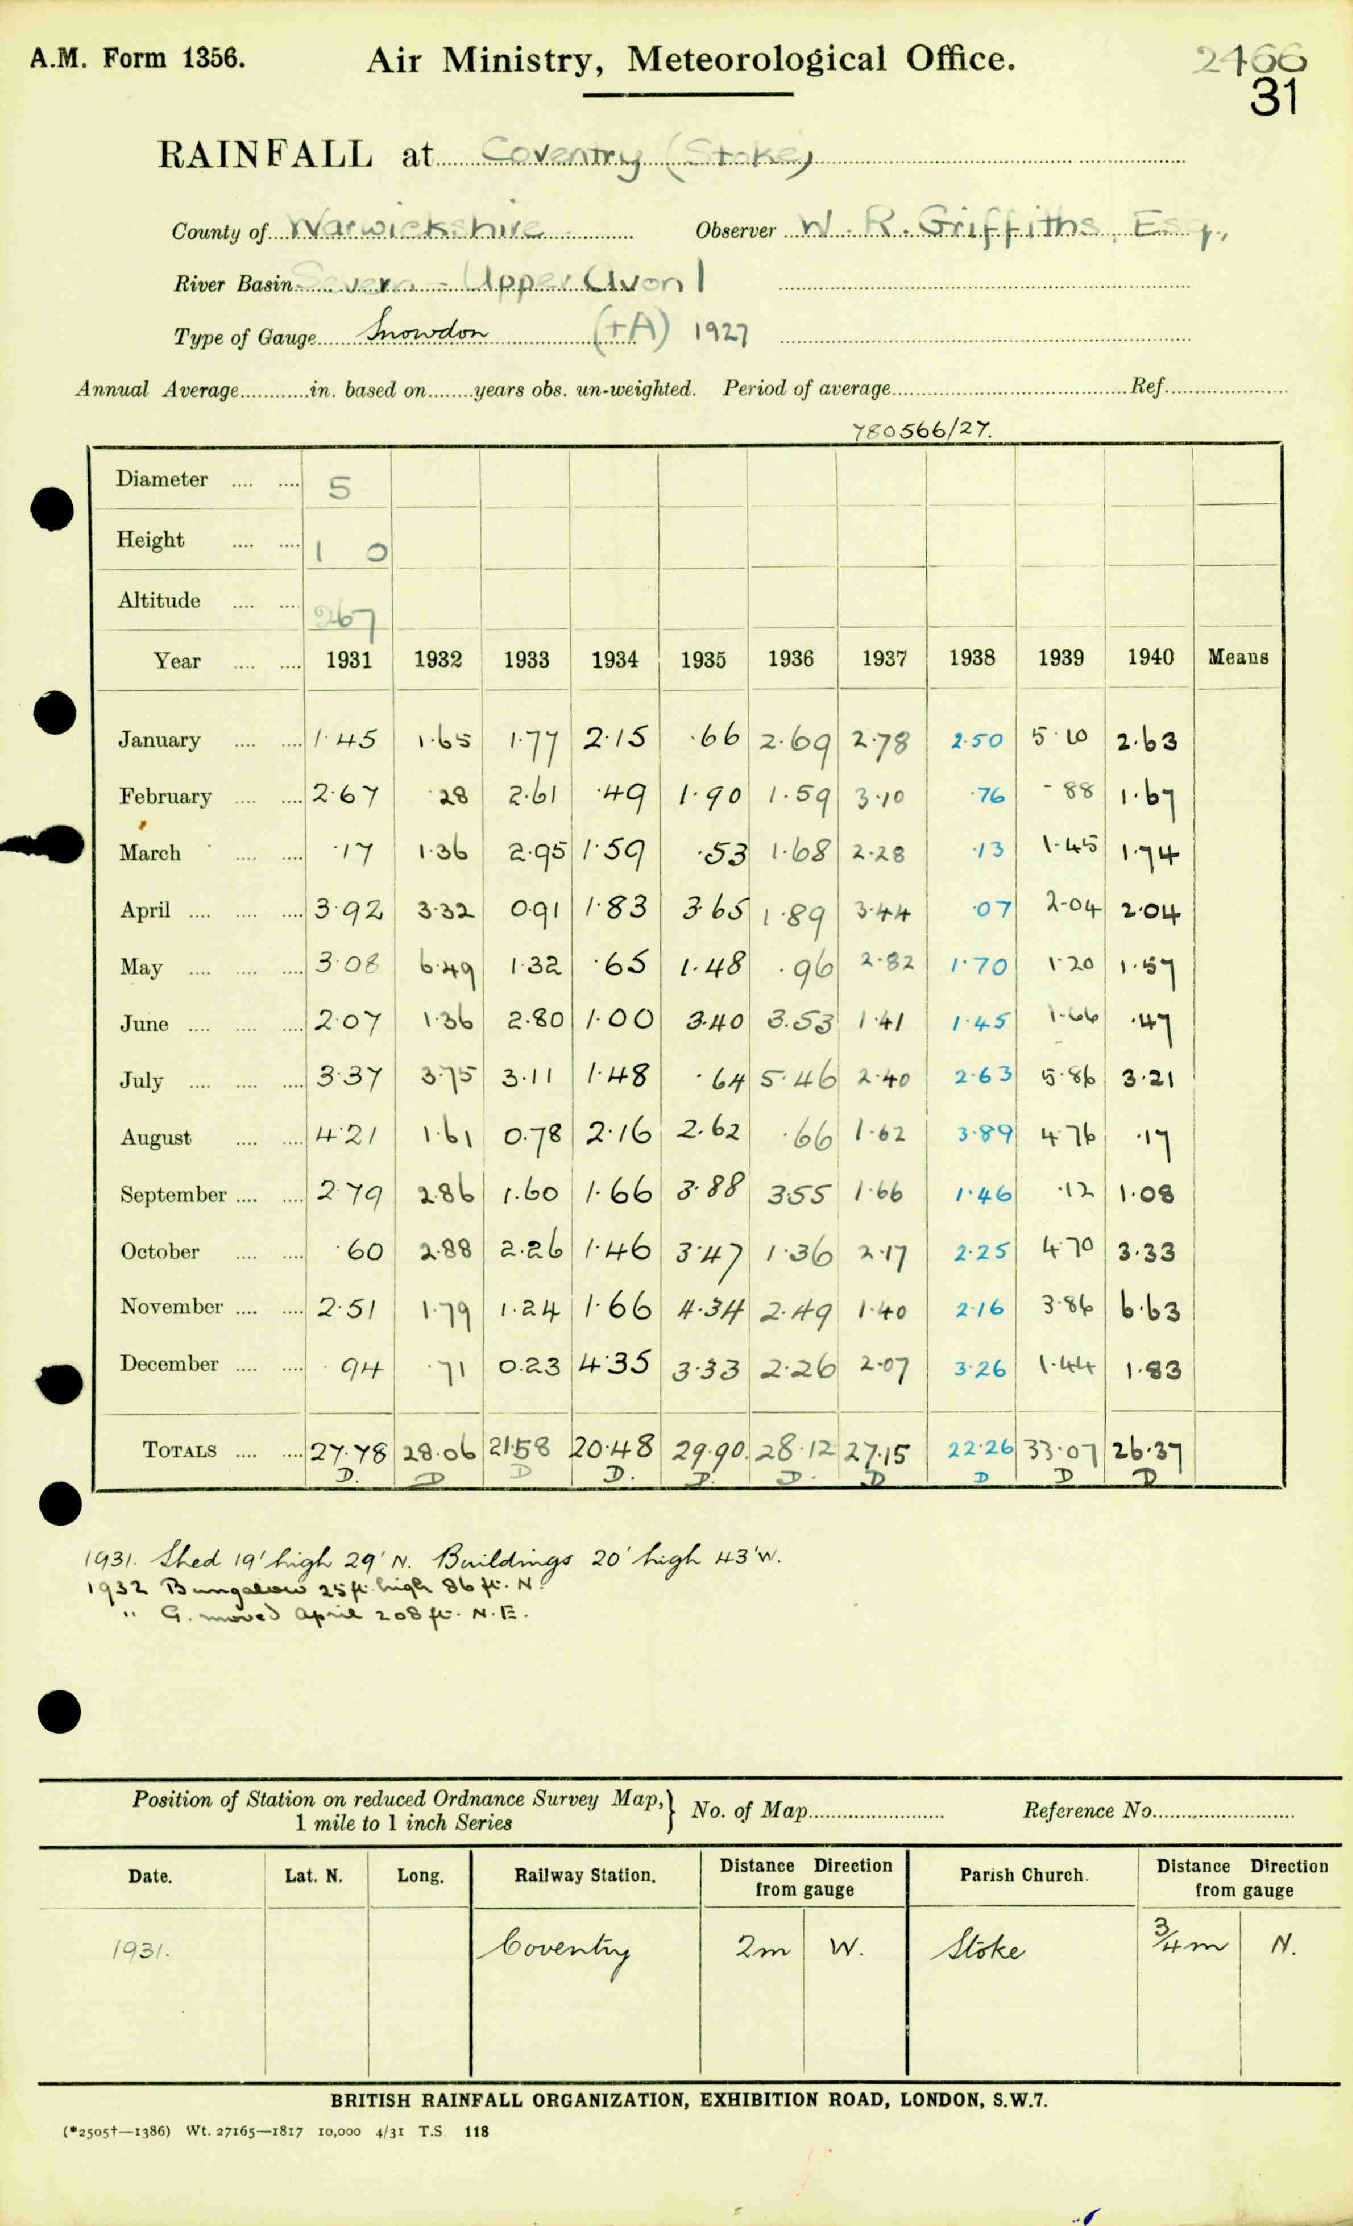 A.M. Form 1356. Air Ministry, Meteorological Office. 2466
31
RAINFALL at Coventry (Stoke)
County of Warwickshire Observer W. R. Griffiths, Esq.,
River Basin Severn - Upper Avon 1
Type of Gauge Snowdon (+A) 1927
Annual Average in. based on years obs. un-weighted. Period of average Ref.
780566/27.
Diameter 5
Height 1 0
Altitude 267
Year 1931 1932 1933 1934 1935 1936 1937 1938 1939 1940 Means
January 1.45 1.65 1.77 2.15 .66 2.69 2.78 2.50 5.10 2.63
February 2.67 .28 2.61 .49 1.90 1.59 3.10 .76 .88 1.67
March .17 1.36 2.95 1.59 .53 1.68 2.28 .13 1.45 1.74
April 3.92 3.32 0.91 1.83 3.65 1.89 3.44 .07 2.04 2.04
May 3.08 6.49 1.32 .65 1.48 .96 2.82 1.70 1.20 1.57
June 2.07 1.36 2.80 1.00 3.40 3.53 1.41 1.45 1.66 .47
July 3.37 3.75 3.11 1.48 .64 5.46 2.40 2.63 5.86 3.21
August 4.21 1.61 0.78 2.16 2.62 .66 1.62 3.89 4.76 .17
September 2.79 2.86 1.60 1.66 3.88 3.55 1.66 1.46 .12 1.08
October .60 2.88 2.26 1.46 3.47 1.36 2.17 2.25 4.70 3.33
November 2.51 1.79 1.24 1.66 4.34 2.49 1.40 2.16 3.86 6.63
December .94 .71 0.23 4.35 3.33 2.26 2.07 3.26 1.44 1.83
TOTALS 27.78 28.06 21.58 20.48 29.90. 28.12 27.15 22.26 33.07 26.37
D. D D D. D. D. D D D D
1931. Shed 19' high 29' N. Buildings 20' high 43' W.
1932 Bungalow 25 ft. high 86 ft. N.
" G. moved April 208 ft. N.E.
Position of Station on reduced Ordnance Survey Map, 1 mile to 1 inch Series } No. of Map Reference No.
Date. Lat. N. Long. Railway Station. Distance Direction from gauge Parish Church. Distance Direction from gauge
1931. Coventry 2m W. Stoke 3/4 m N.
BRITISH RAINFALL ORGANIZATION, EXHIBITION ROAD, LONDON, S.W.7.
(*2505†—1386) Wt. 27165—1817 10,000 4/31 T.S. 118